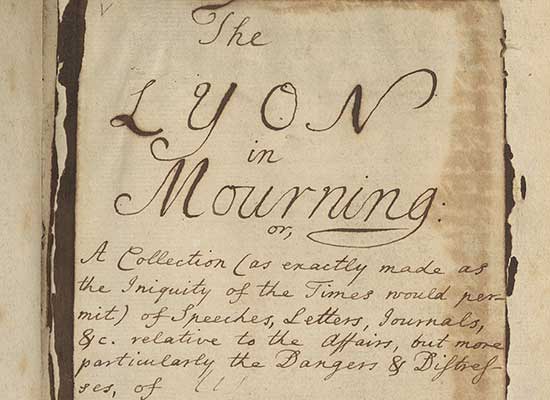 The
LYON
in
Mourning:
or,
A Collection (as exactly made as
the Iniquity of the Times would per-
mit) of Speeches, Letters, Journals,
&c. relative to the Affairs, but more
particularly the Dangers & Distres-
ses, of